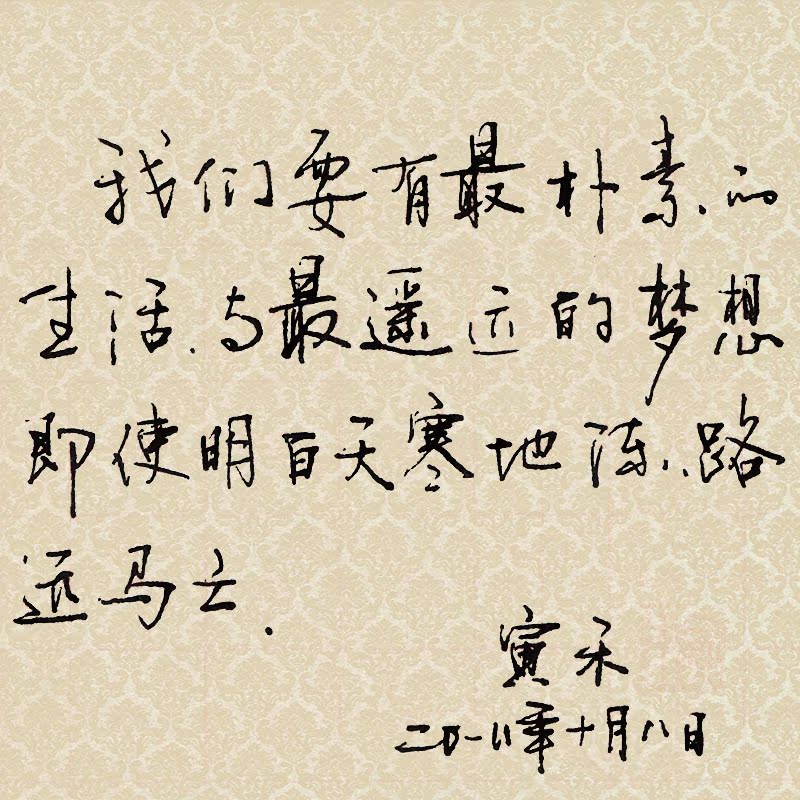 我们要有最朴素的
生活.与最遥远的梦想
即使明日天寒地冻.路
远马亡.
寅禾
二〇一八年十月八日